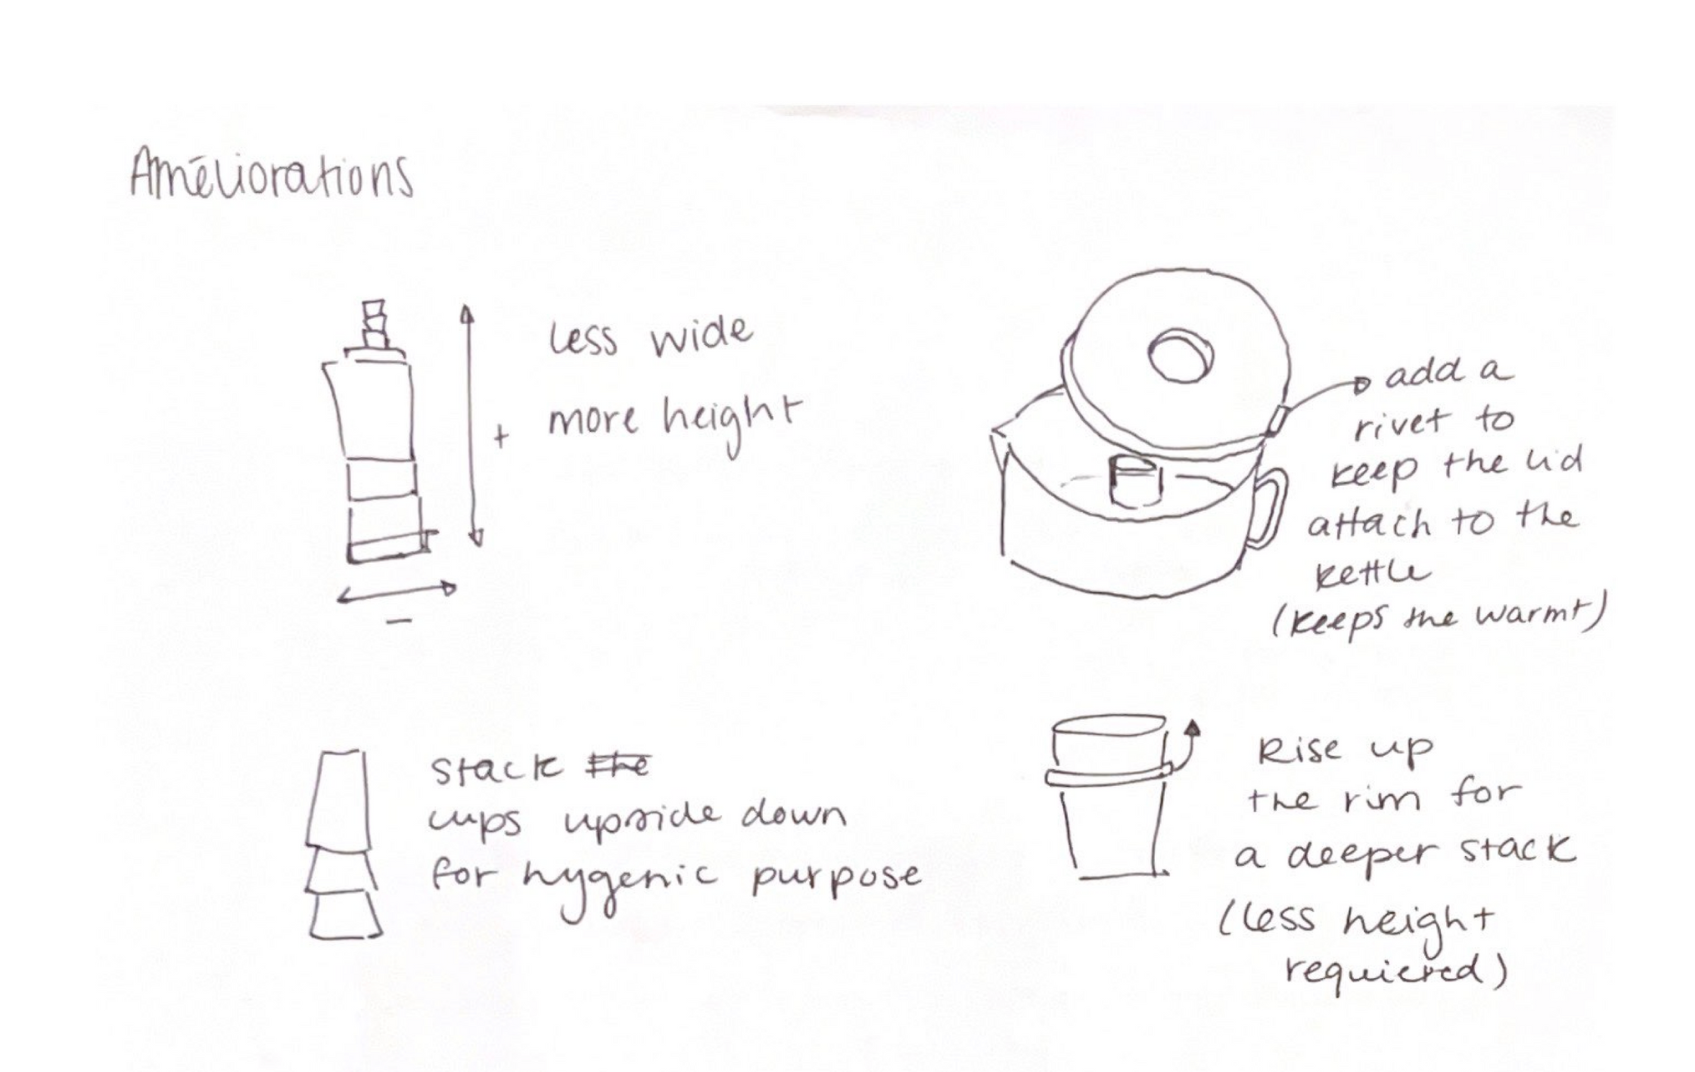 Améliorations
less wide
+ more height
–
add a
rivet to
keep the lid
attach to the
kettle
(keeps the warmt)
stack the
cups upside down
for hygenic purpose
Rise up
the rim for
a deeper stack
(less height
requiered)